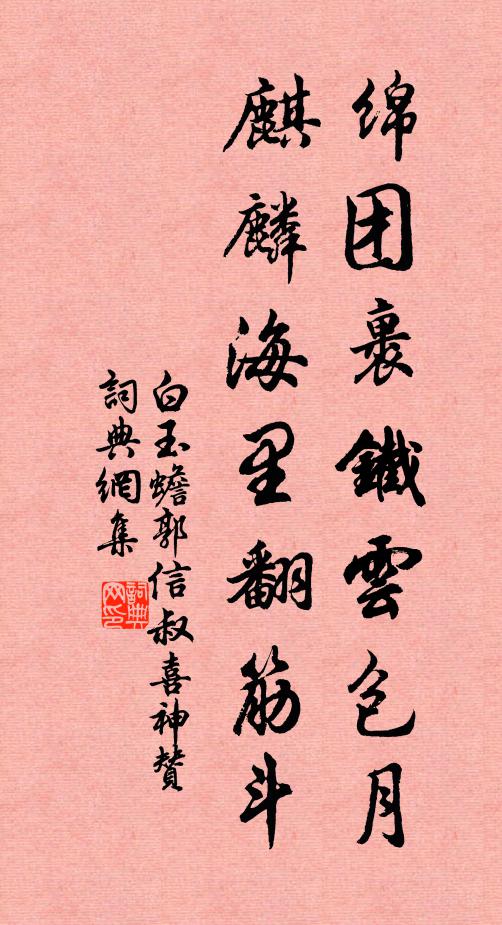 绵团裹鐵雲包月
麒麟海里翻筋斗
白玉蟾郭信叔喜神贊
詞典網集
詞典網印